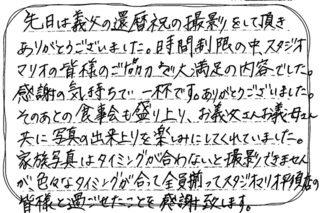 先日は義父の還暦祝の撮影をして頂き
ありがとうございました。時間制限の中、スタジオ
マリオの皆様のご協力で大満足の内容でした。
感謝の気持ちで一杯です。ありがとうございました。
そのあとの食事会も盛り上り、お義父さんお義母さん
共に写真の出来上りを楽しみにしてくれていました。
家族写真はタイミングが合わないと撮影できません
が、色々なタイミングが合って全員揃ってスタジオマリオ平須店の
皆様と過ごせたことを感謝致します。